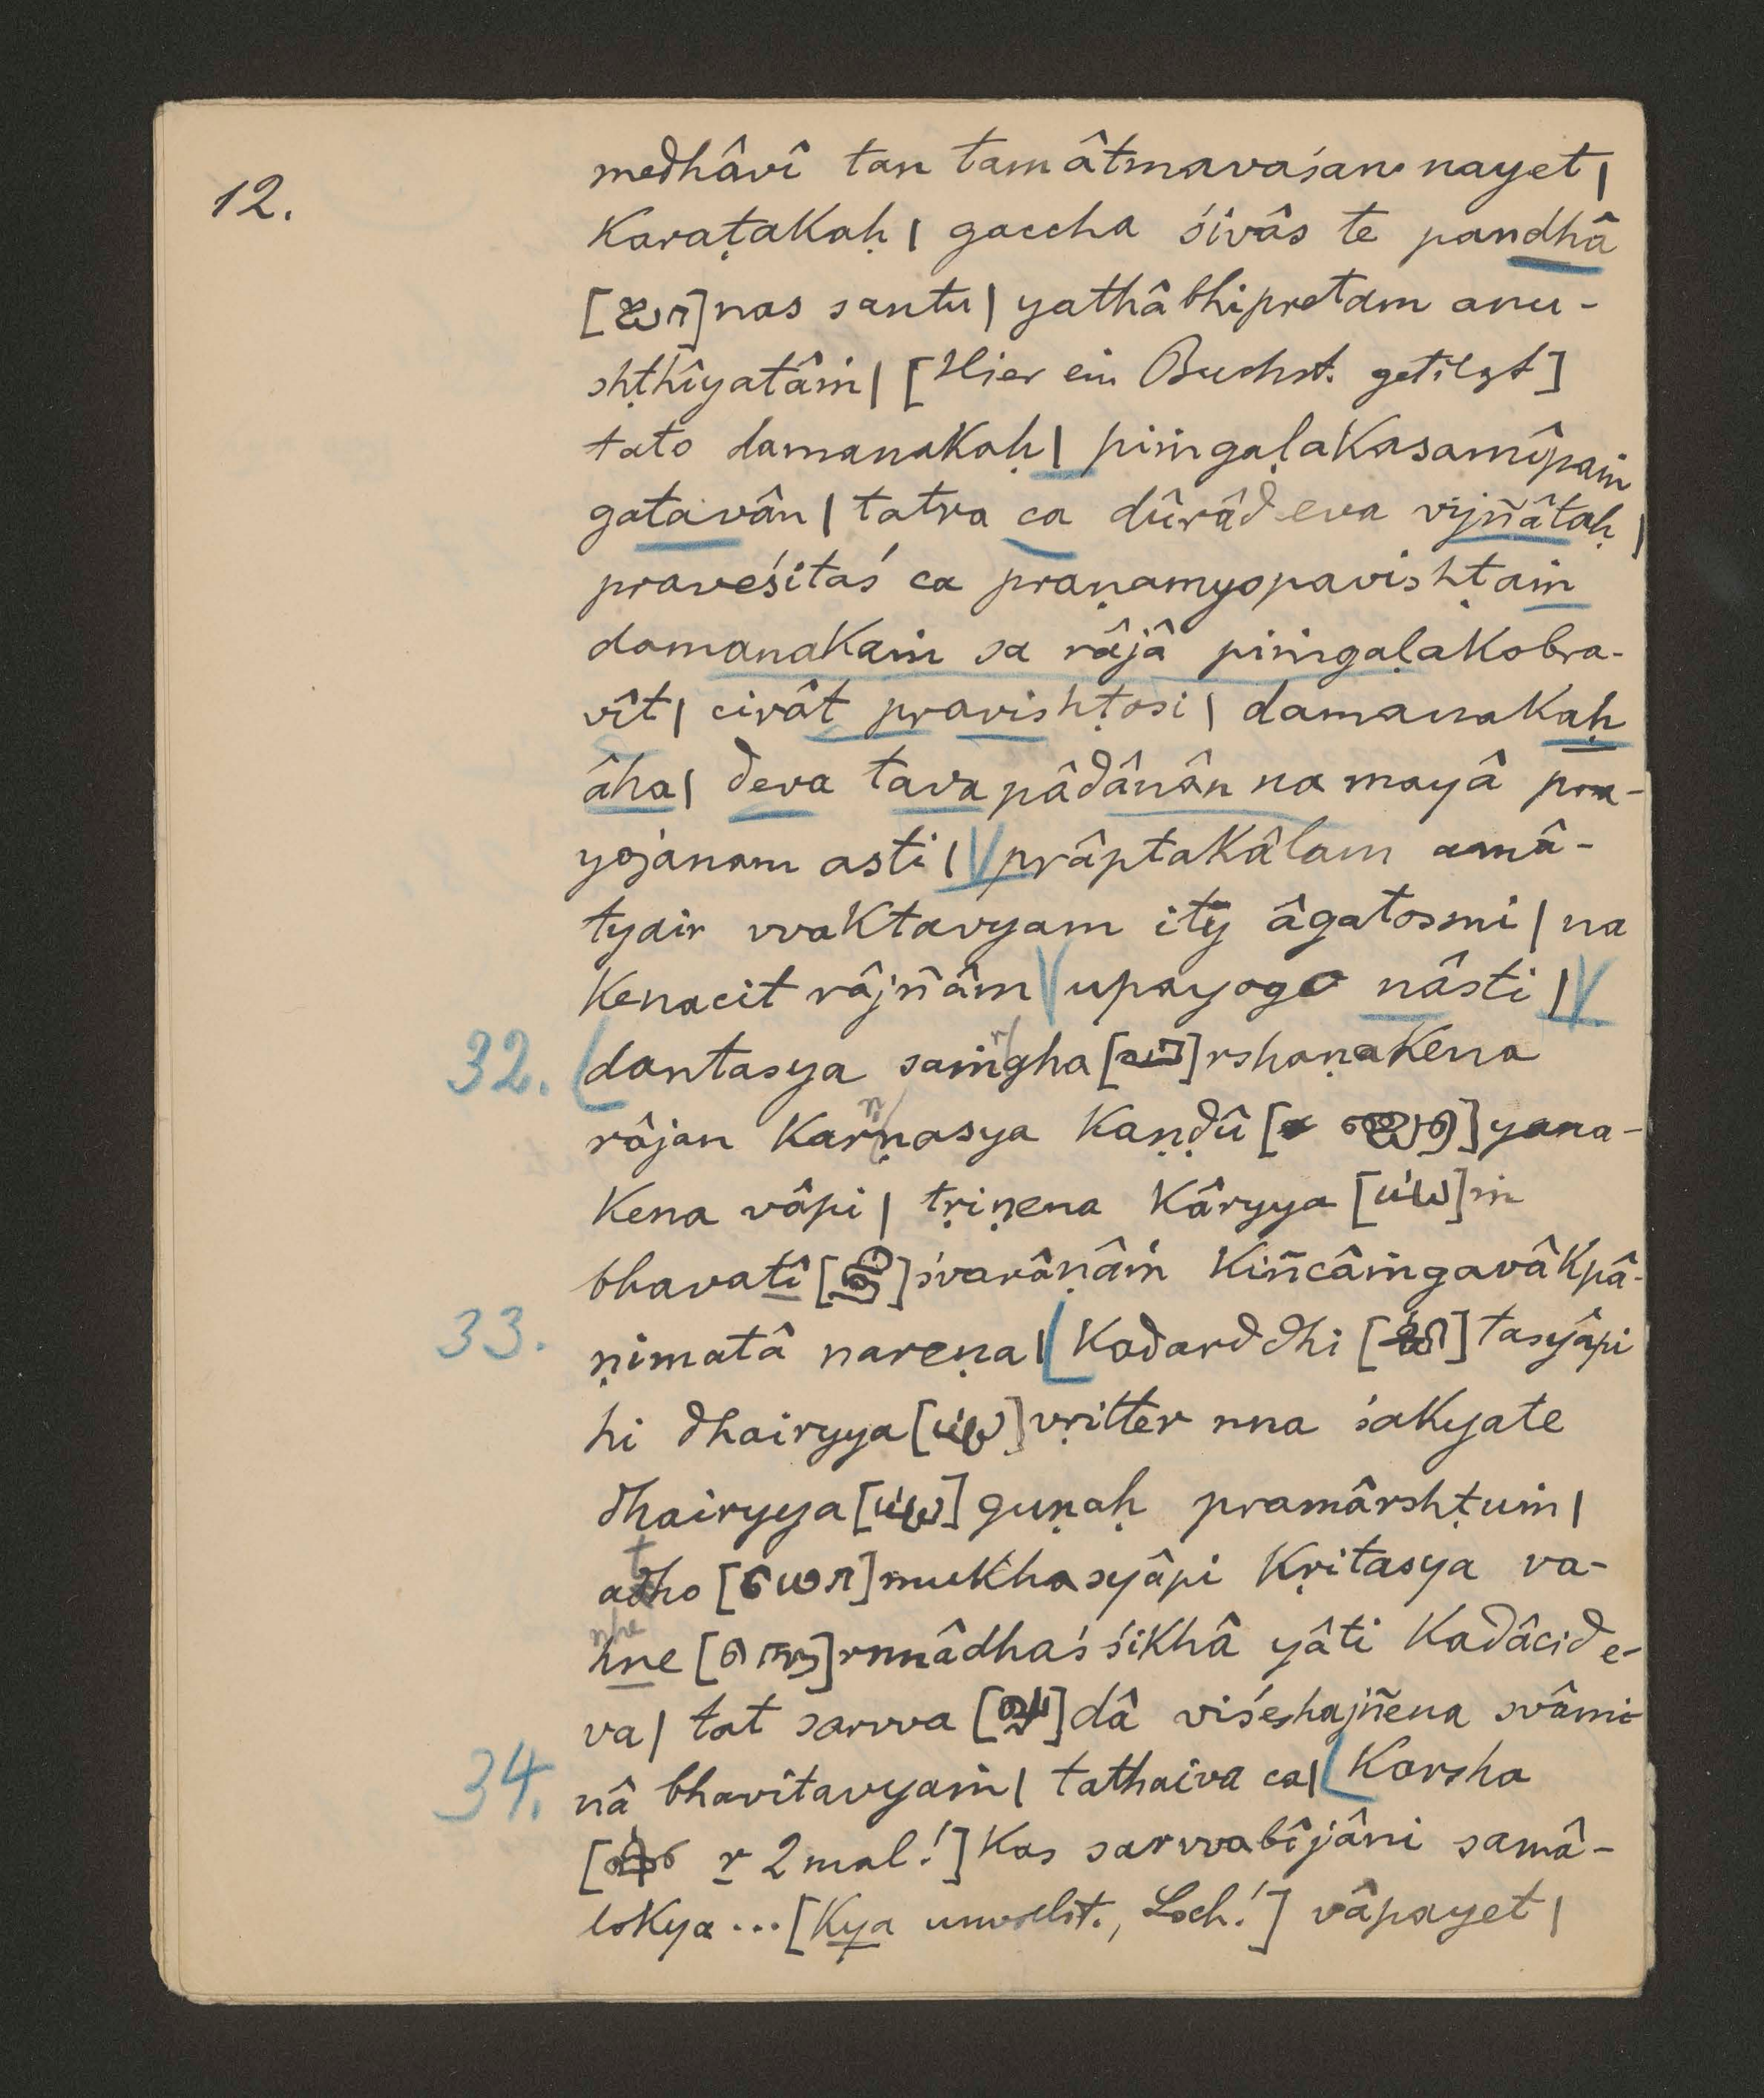 12.
medhâvî tan tamâtmavaśan nayet |
Karaṭakaḥ | gaccha śivâs te pandhâ
[ ]nas santu | yathâbhipretam anu-
shṭhîyatâṁ | [Hier ein Buchst. getilgt]
tato damanakaḥ | piṁgaḷakasamîpaṁ
gatavân | tatra ca dûrâd eva vijñâtaḥ |
praveśitaś ca praṇamyopavishṭaṁ
damanakaṁ sa râjâ piṁgaḷakobra-
vît | cirât pravishṭosi | damanakaḥ
âha | deva tava pâdânân na mayâ pra-
yojanam asti | V prâptakâlam amâ-
tyair vvaktavyam ity âgatosmi | na
kenacit râjñâm V upayogo nâsti | V
32. dantasya saṁgha [ ] rshaṇakena
râjan karṇasya kaṇḍû [ ] yana-
kena vâpi | tṛiṇena kâryya [ ]ṁ
bhavatî [ ] śvarâṇâṁ kiñcâṁgavâkpâ-
33. ṇimatâ nareṇa | kadarddhi [ ] tasyâpi
hi dhairyya [ ] vṛitter nna śakyate
dhairyya [ ] guṇaḥ pramârshṭuṁ |
adho [ധോ] mukhasyâpi kṛitasya va-
hne [ ] rnnâdhaś śikhâ yâti kadâcid e-
va | tat sarvva [ ] dâ viśeshajñena svâmi-
34. nâ bhavitavyaṁ | tathaiva ca | karsha
[ r 2mal!] kas sarvvabîjâni samâ-
lokya ... [kya unvollst., Loch!] vâpayet |